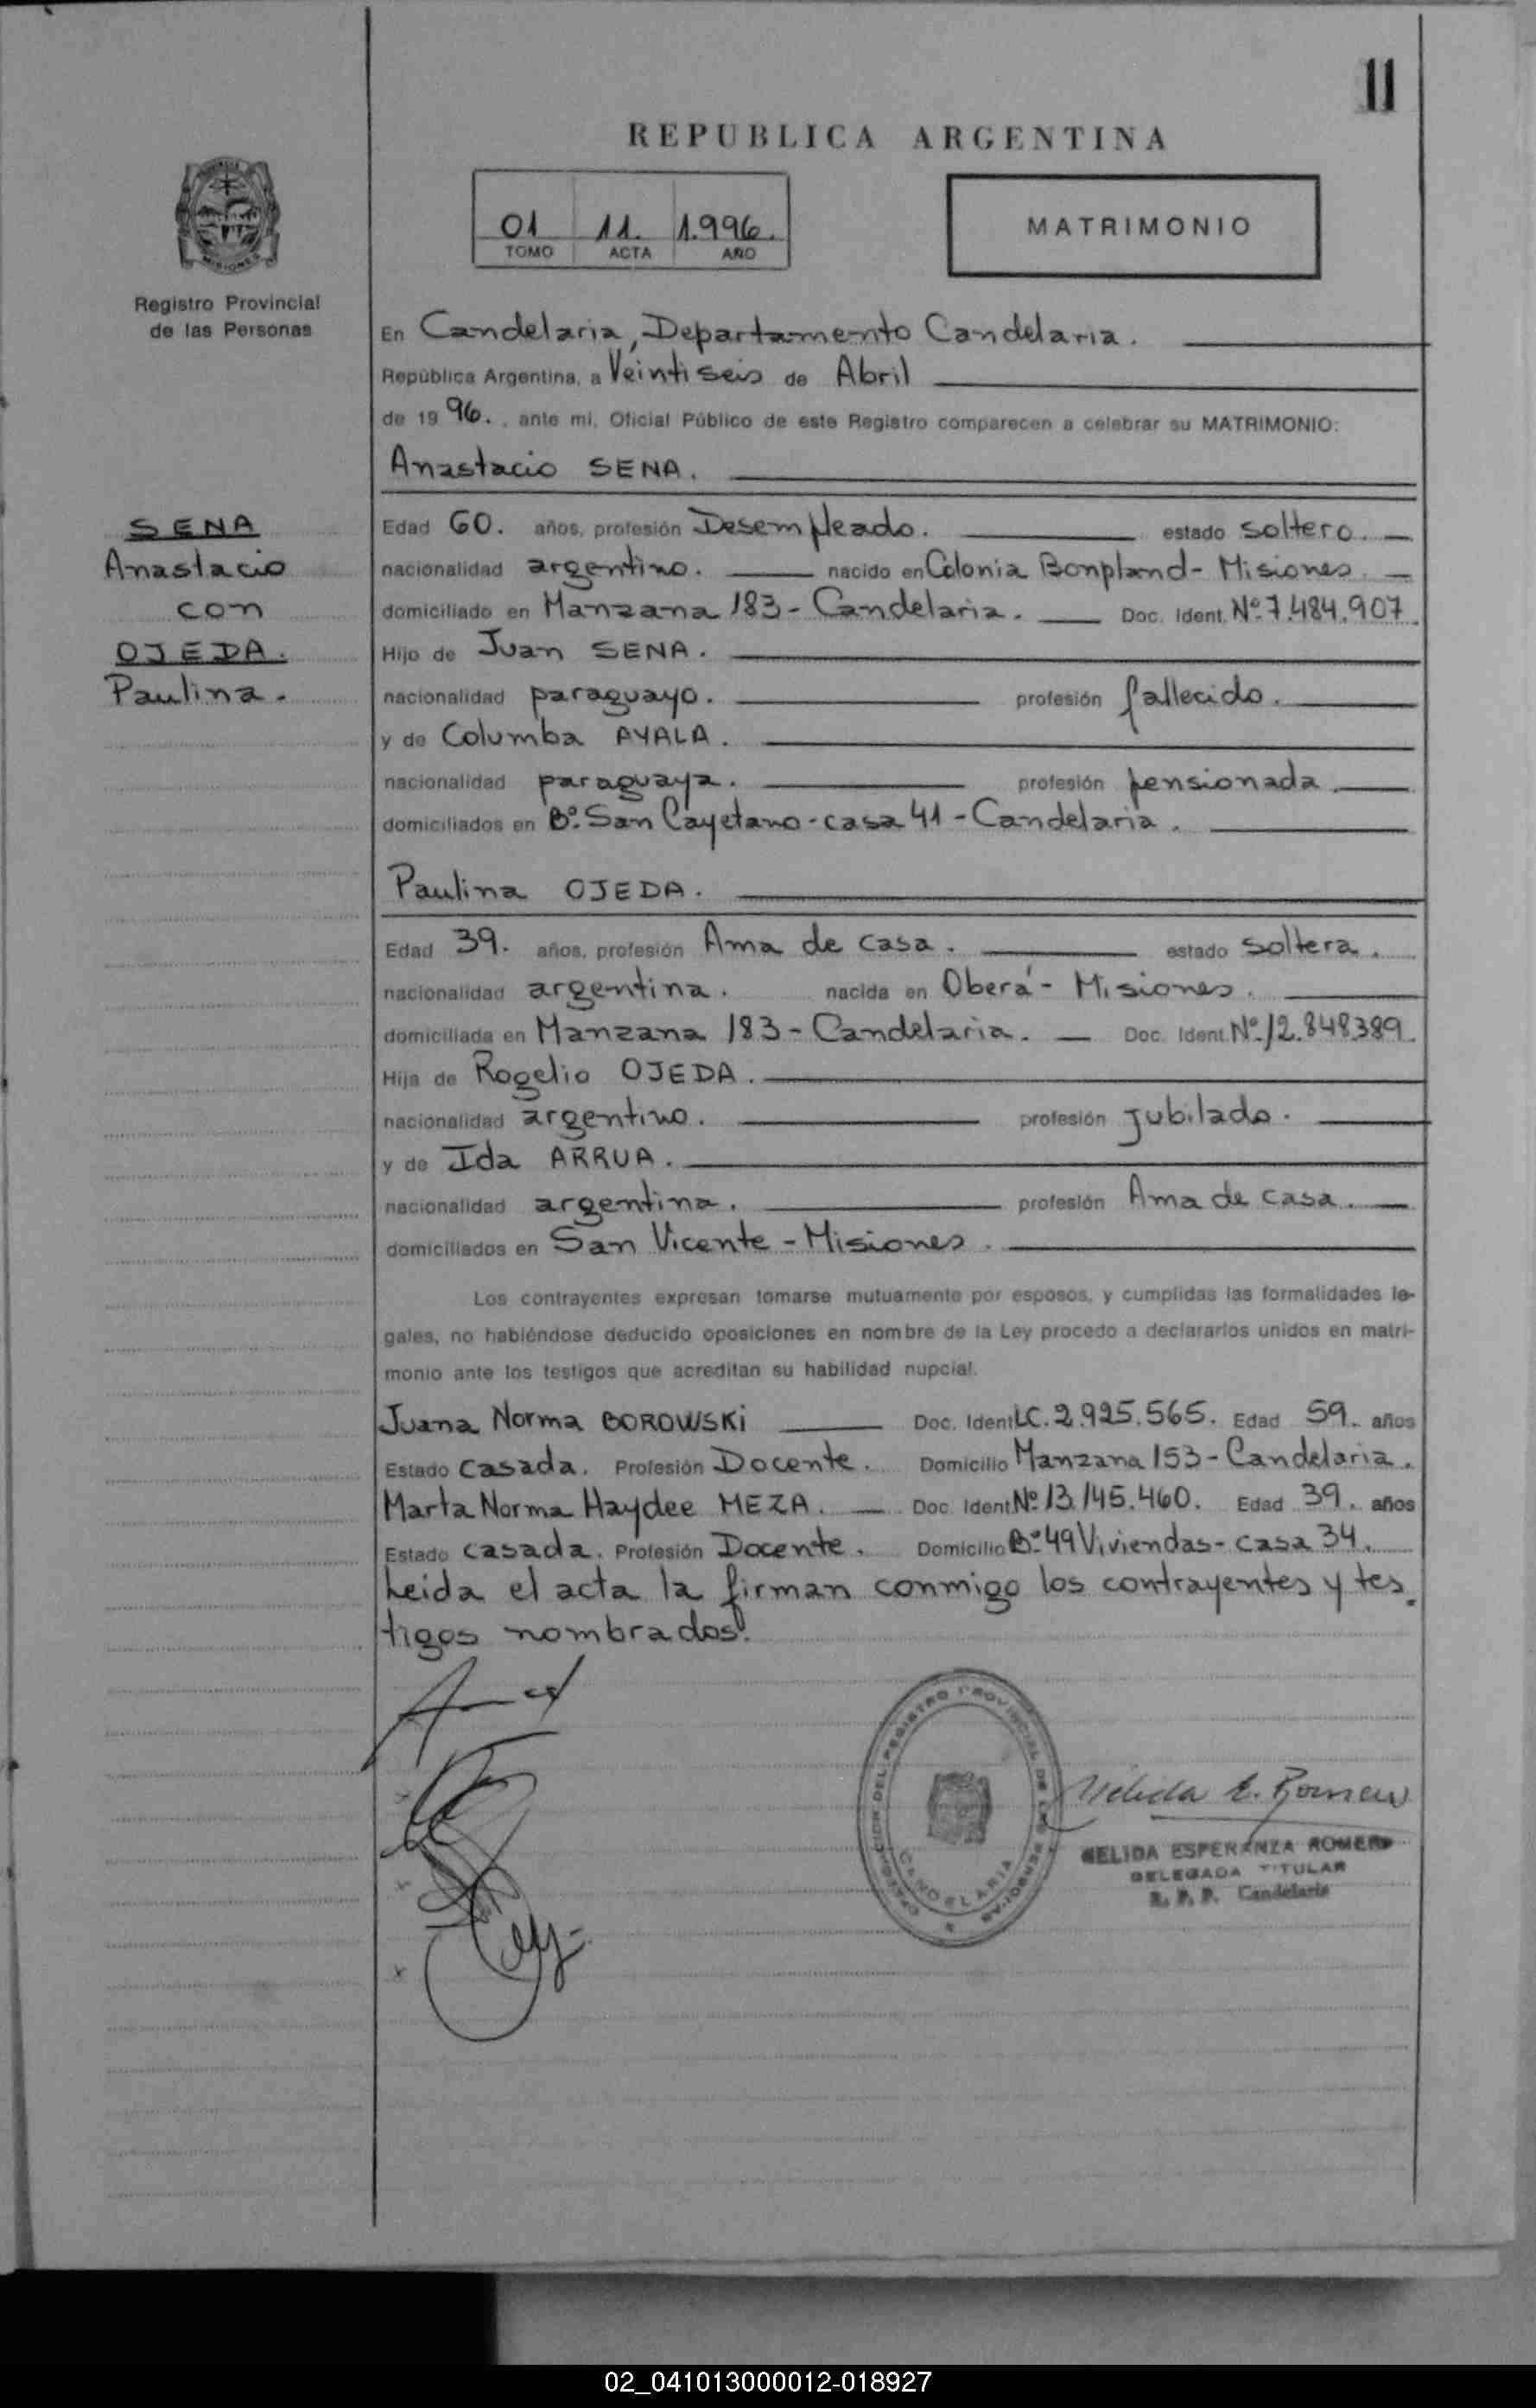 11
REPUBLICA ARGENTINA
01 11. 1.996.
TOMO ACTA AÑO
MATRIMONIO
MISIONES
Registro Provincial
de las Personas
SENA
Anastacio
con
OJEDA.
Paulina.
En Candelaria, Departamento Candelaria.
República Argentina, a Veintiseis de Abril
de 19 96. , ante mi, Oficial Público de este Registro comparecen a celebrar su MATRIMONIO:
Anastacio SENA.
Edad 60. años, profesión Desempleado. estado soltero.
nacionalidad argentino. nacido en Colonia Bonpland - Misiones.
domiciliado en Manzana 183 - Candelaria. Doc. Ident. Nº 7.484.907.
Hijo de Juan SENA.
nacionalidad paraguayo. profesión fallecido.
y de Columba AYALA.
nacionalidad paraguaya. profesión pensionada.
domiciliados en Bº. San Cayetano - casa 41 - Candelaria.
Paulina OJEDA.
Edad 39. años, profesión Ama de casa. estado soltera.
nacionalidad argentina. nacida en Oberá - Misiones.
domiciliada en Manzana 183 - Candelaria. Doc. Ident. Nº 12.848.389.
Hija de Rogelio OJEDA.
nacionalidad argentino. profesión jubilado.
y de Ida ARRUA.
nacionalidad argentina. profesión Ama de casa.
domiciliados en San Vicente - Misiones.
Los contrayentes expresan tomarse mutuamente por esposos, y cumplidas las formalidades le-
gales, no habiéndose deducido oposiciones en nombre de la Ley procedo a declararlos unidos en matri-
monio ante los testigos que acreditan su habilidad nupcial.
Juana Norma BOROWSKi Doc. Ident LC. 2.925.565. Edad 59. años
Estado casada. Profesión Docente. Domicilio Manzana 153 - Candelaria.
Marta Norma Haydee MEZA. Doc. Ident. Nº 13.145.460. Edad 39. años
Estado casada. Profesión Docente. Domicilio Bº 49 Viviendas - casa 34.
Leida el acta la firman conmigo los contrayentes y tes
tigos nombrados.
REGISTRO PROVINCIAL DE LAS PERSONAS
CANDELARIA
Nélida E. Romero
NELIDA ESPERANZA ROMERO
DELEGADA TITULAR
R. P. P. Candelaria
02_041013000012-018927